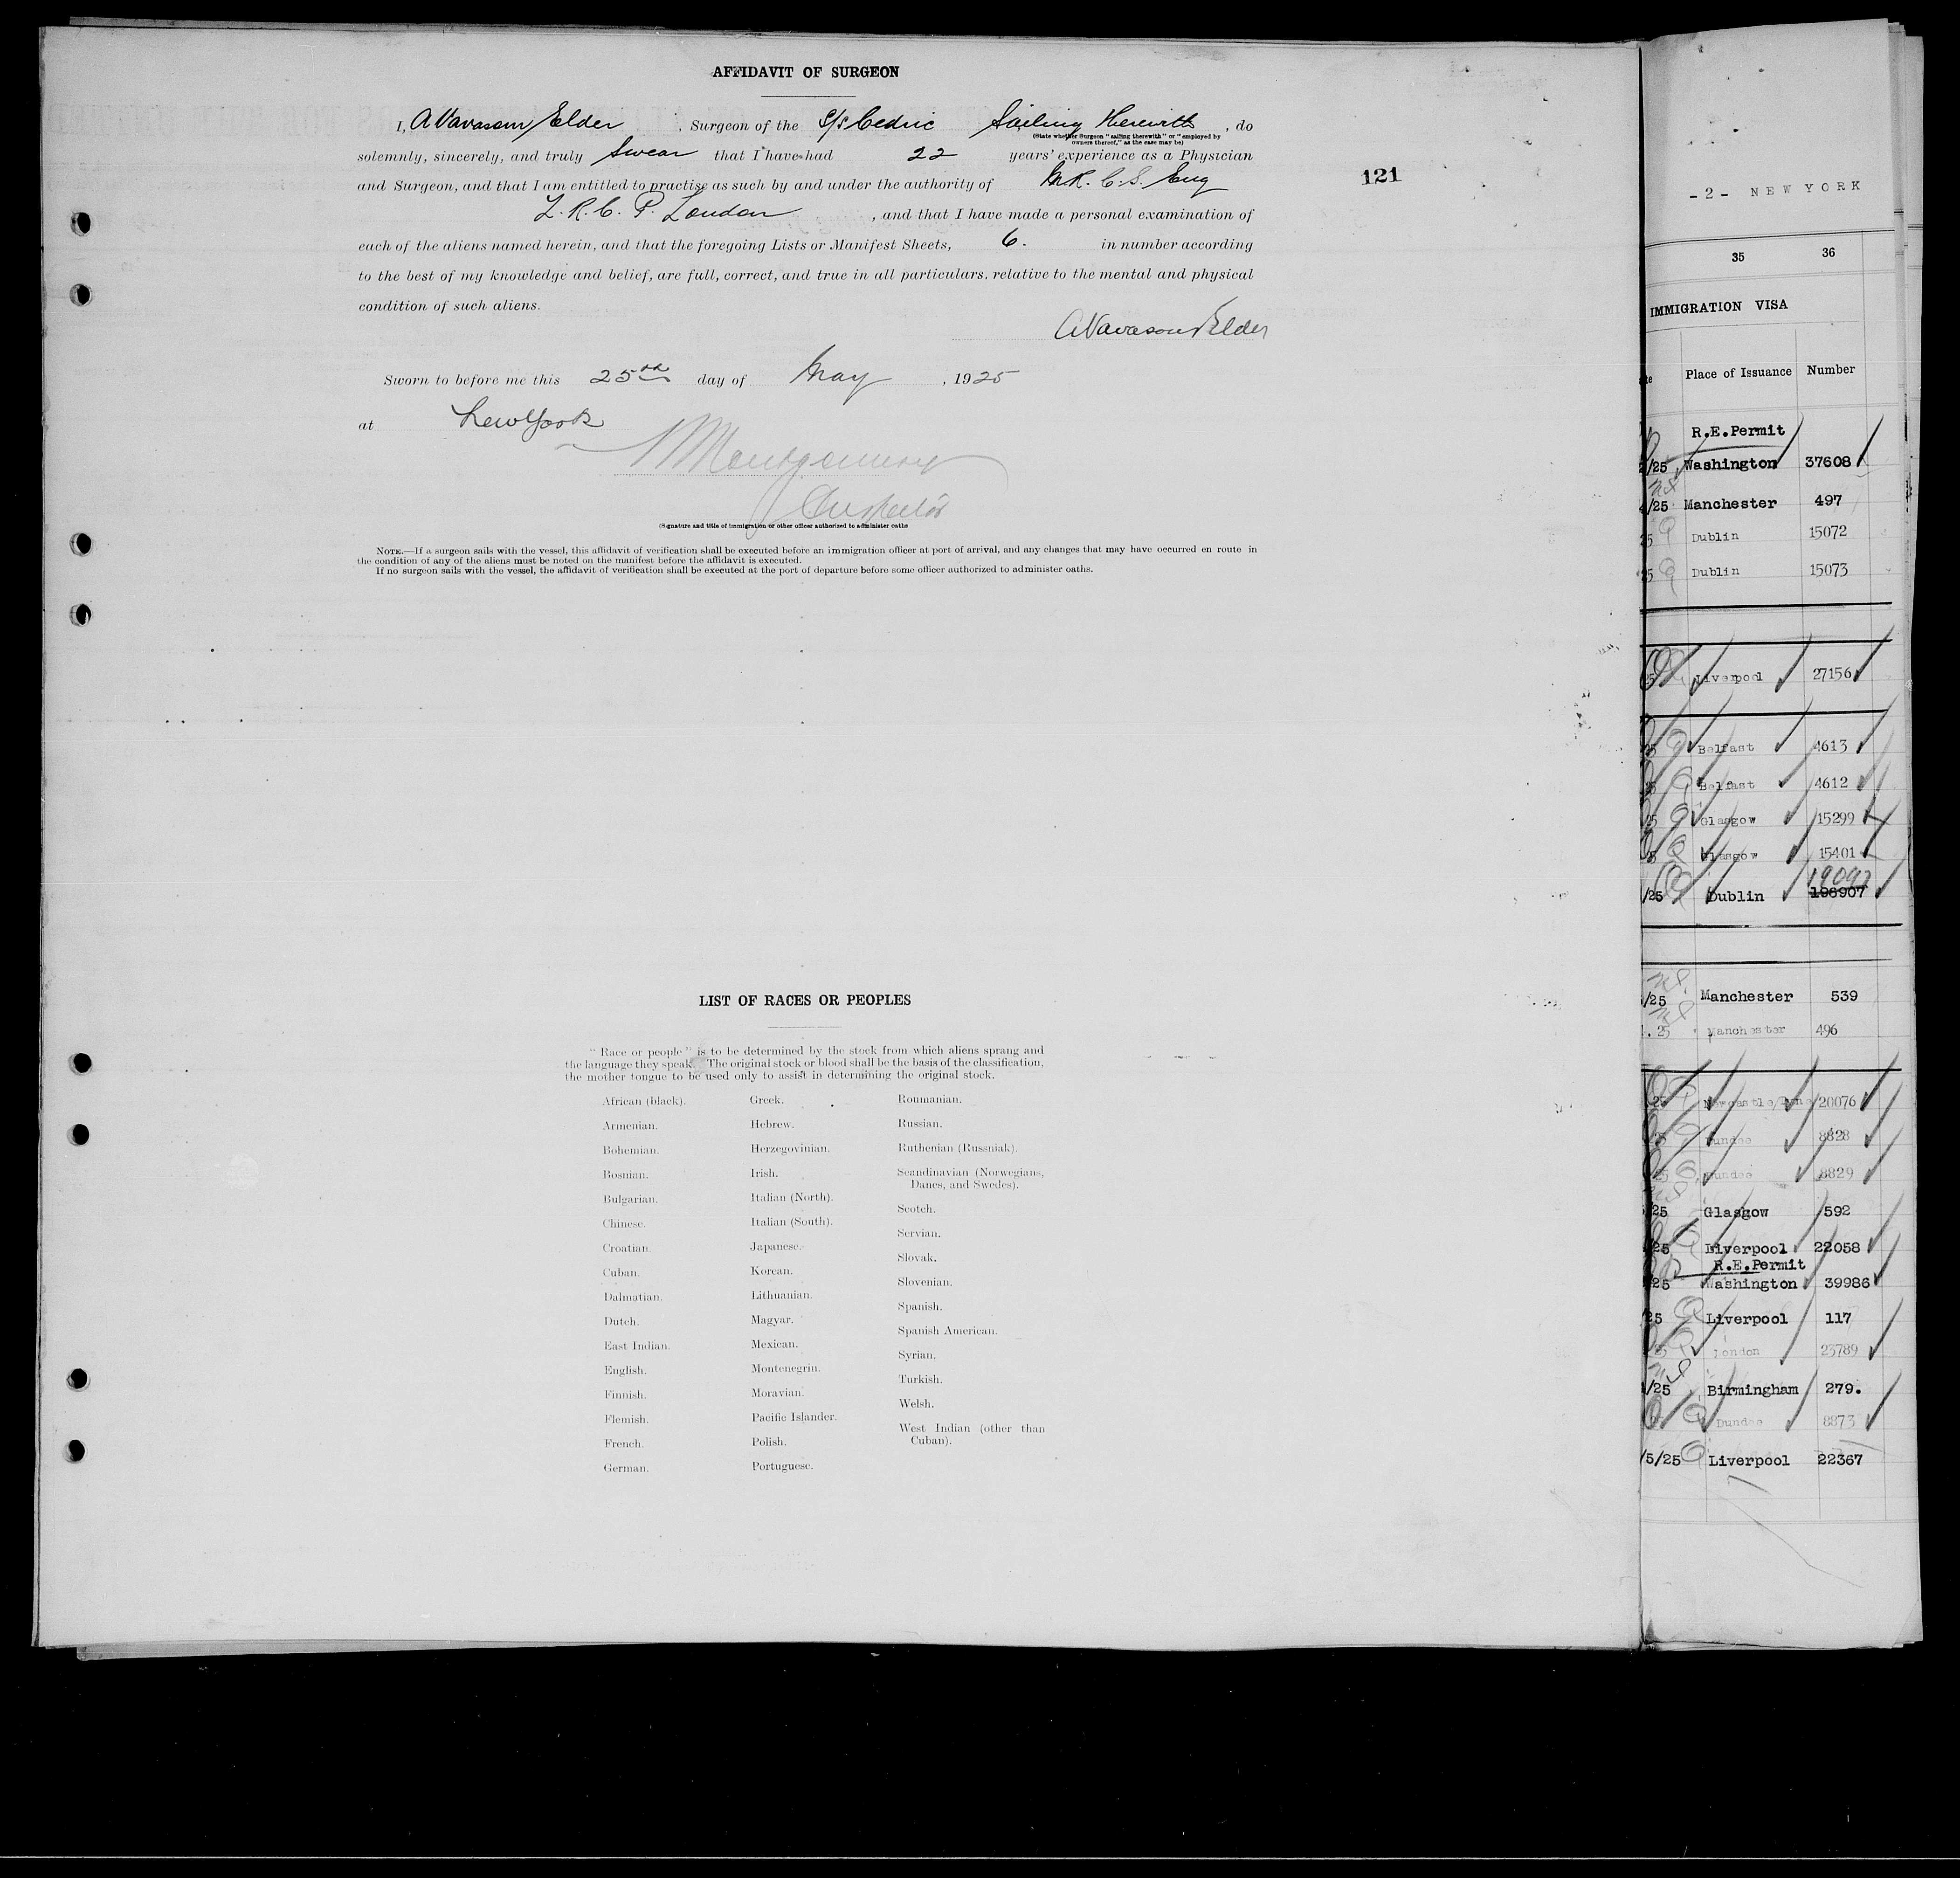 AFFIDAVIT OF SURGEON
I, A Vavasour Elder, Surgeon of the S/S Cedric Sailing Herewith, do
(State whether Surgeon "sailing therewith" or "employed by
owners thereof," as the case may be)
solemnly, sincerely, and truly Swear that I have had 22 years' experience as a Physician
and Surgeon, and that I am entitled to practise as such by and under the authority of M.R.C.S. Eng
L.R.C.P. London, and that I have made a personal examination of
each of the aliens named herein, and that the foregoing Lists or Manifest Sheets, 6. in number according
to the best of my knowledge and belief, are full, correct, and true in all particulars, relative to the mental and physical
condition of such aliens.
A Vavasour Elder
Sworn to before me this 25th day of May, 1925
at New York
Montgomery
Inspector
(Signature and title of immigration or other officer authorized to administer oaths
NOTE.—If a surgeon sails with the vessel, this affidavit of verification shall be executed before an immigration officer at port of arrival, and any changes that may have occurred en route in
the condition of any of the aliens must be noted on the manifest before the affidavit is executed.
If no surgeon sails with the vessel, the affidavit of verification shall be executed at the port of departure before some officer authorized to administer oaths.
121
LIST OF RACES OR PEOPLES
"Race or people" is to be determined by the stock from which aliens sprang and
the language they speak. The original stock or blood shall be the basis of the classification,
the mother tongue to be used only to assist in determining the original stock.
African (black).
Armenian.
Bohemian.
Bosnian.
Bulgarian.
Chinese.
Croatian.
Cuban.
Dalmatian.
Dutch.
East Indian.
English.
Finnish.
Flemish.
French.
German.
Greek.
Hebrew.
Herzegovinian.
Irish.
Italian (North).
Italian (South).
Japanese.
Korean.
Lithuanian.
Magyar.
Mexican.
Montenegrin.
Moravian.
Pacific Islander.
Polish.
Portuguese.
Roumanian.
Russian.
Ruthenian (Russniak).
Scandinavian (Norwegians,
Danes, and Swedes).
Scotch.
Servian.
Slovak.
Slovenian.
Spanish.
Spanish American.
Syrian.
Turkish.
Welsh.
West Indian (other than
Cuban).
-2- NEW YORK
35 36
IMMIGRATION VISA
Place of Issuance Number
R.E.Permit
/25 Washington 37608
/25 Manchester 497
25 Dublin 15072
25 Dublin 15073
25 Liverpool 27156
25 Belfast 4613
25 Belfast 4612
25 Glasgow 15299
25 Glasgow 15401
19097
/25 Dublin 196907
/25 Manchester 539
.25 Manchester 496
25 Newcastle/Tyne 20076
25 Dundee 8828
25 Dundee 8829
25 Glasgow 592
/25 Liverpool 22058
R.E.Permit
25 Washington 39986
25 Liverpool 117
25 London 23789
/25 Birmingham 279.
Dundee 8873
/5/25 Liverpool 22367